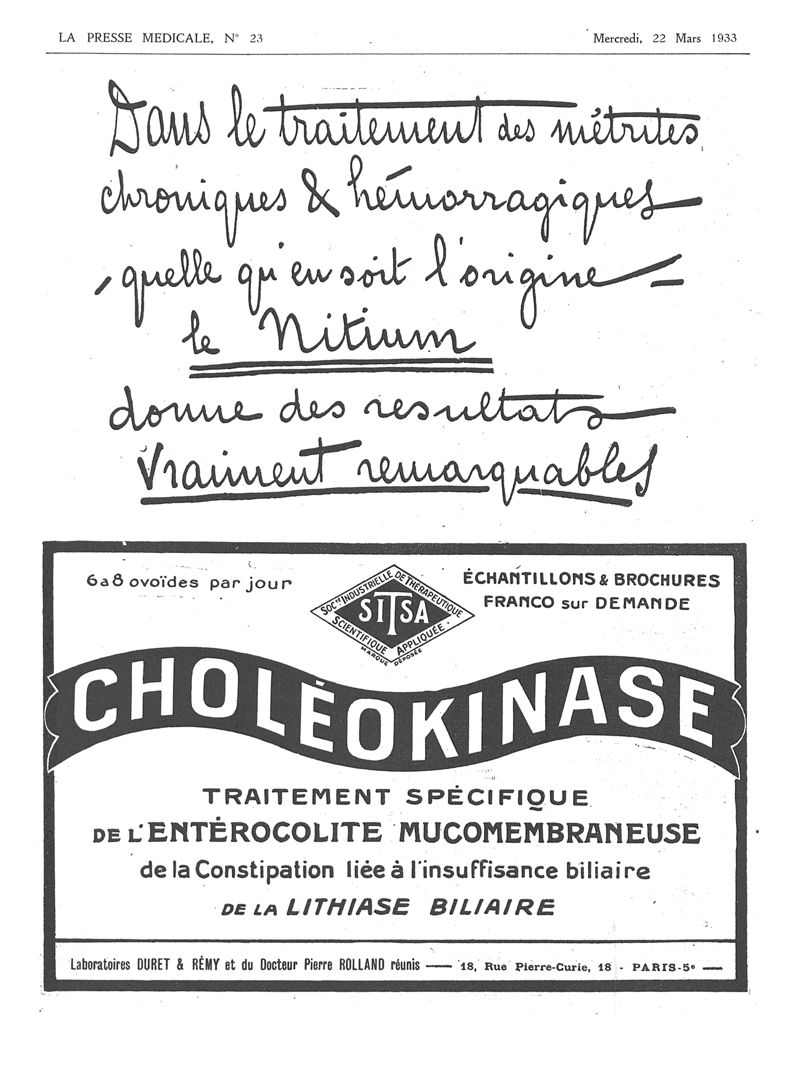 LA PRESSE MEDICALE, N° 23
Mercredi, 22 Mars 1933
Dans le traitement des métrites
chroniques & hémorragiques
, quelle qu'en soit l'origine
le Nitium
donne des resultats
vraiment remarquables
6 a 8 ovoïdes par jour
SOCté INDUSTRIELLE DE THERAPEUTIQUE
SITSA
SCIENTIFIQUE APPLIQUÉE
MARQUE DÉPOSÉE
ÉCHANTILLONS & BROCHURES
FRANCO sur DEMANDE
CHOLÉOKINASE
TRAITEMENT SPÉCIFIQUE
DE L'ENTÉROCOLITE MUCOMEMBRANEUSE
de la Constipation liée à l'insuffisance biliaire
DE LA LITHIASE BILIAIRE
Laboratoires DURET & RÉMY et du Docteur Pierre ROLLAND réunis — 18, Rue Pierre-Curie, 18 - PARIS-5e —